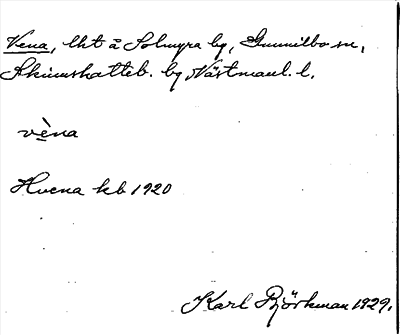 Vena, lht å Solmyra by, Gunnilbo sn,
Skinnskatteb. bg Västmanl. l.
vèna
Hvena kb 1920
Karl Björkman 1929.